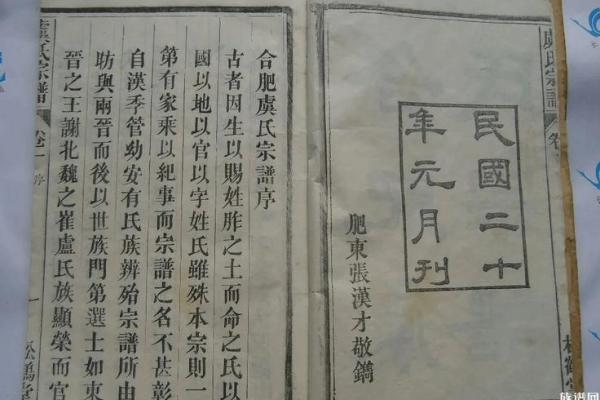 虞氏宗譜
卷
民國二十
年元月刊
肥東張漢才敬鐫
合肥虞氏宗譜序
古者因生以賜姓胙之土而命之氏以
國以地以官以字姓氏雖殊本宗則一
第有家乘以紀事而宗譜之名不甚彰
自漢季管幼安有氏族辨殆宗譜所由
昉與兩晉而後以世族門第選士如東
晉之王謝北魏之崔盧氏族顯榮而官
虞氏宗譜
卷一
序
一
松鶴堂
族谱网